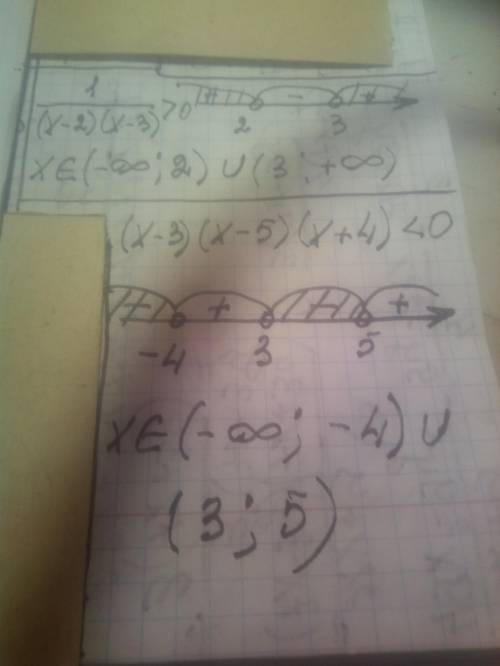 1/((x-2)(x-3)) >0 + - +
2 3
x∈(-∞; 2) ∪ (3; +∞)
(x-3)(x-5)(x+4) <0
- + - +
-4 3 5
x∈(-∞; -4) ∪
(3; 5)